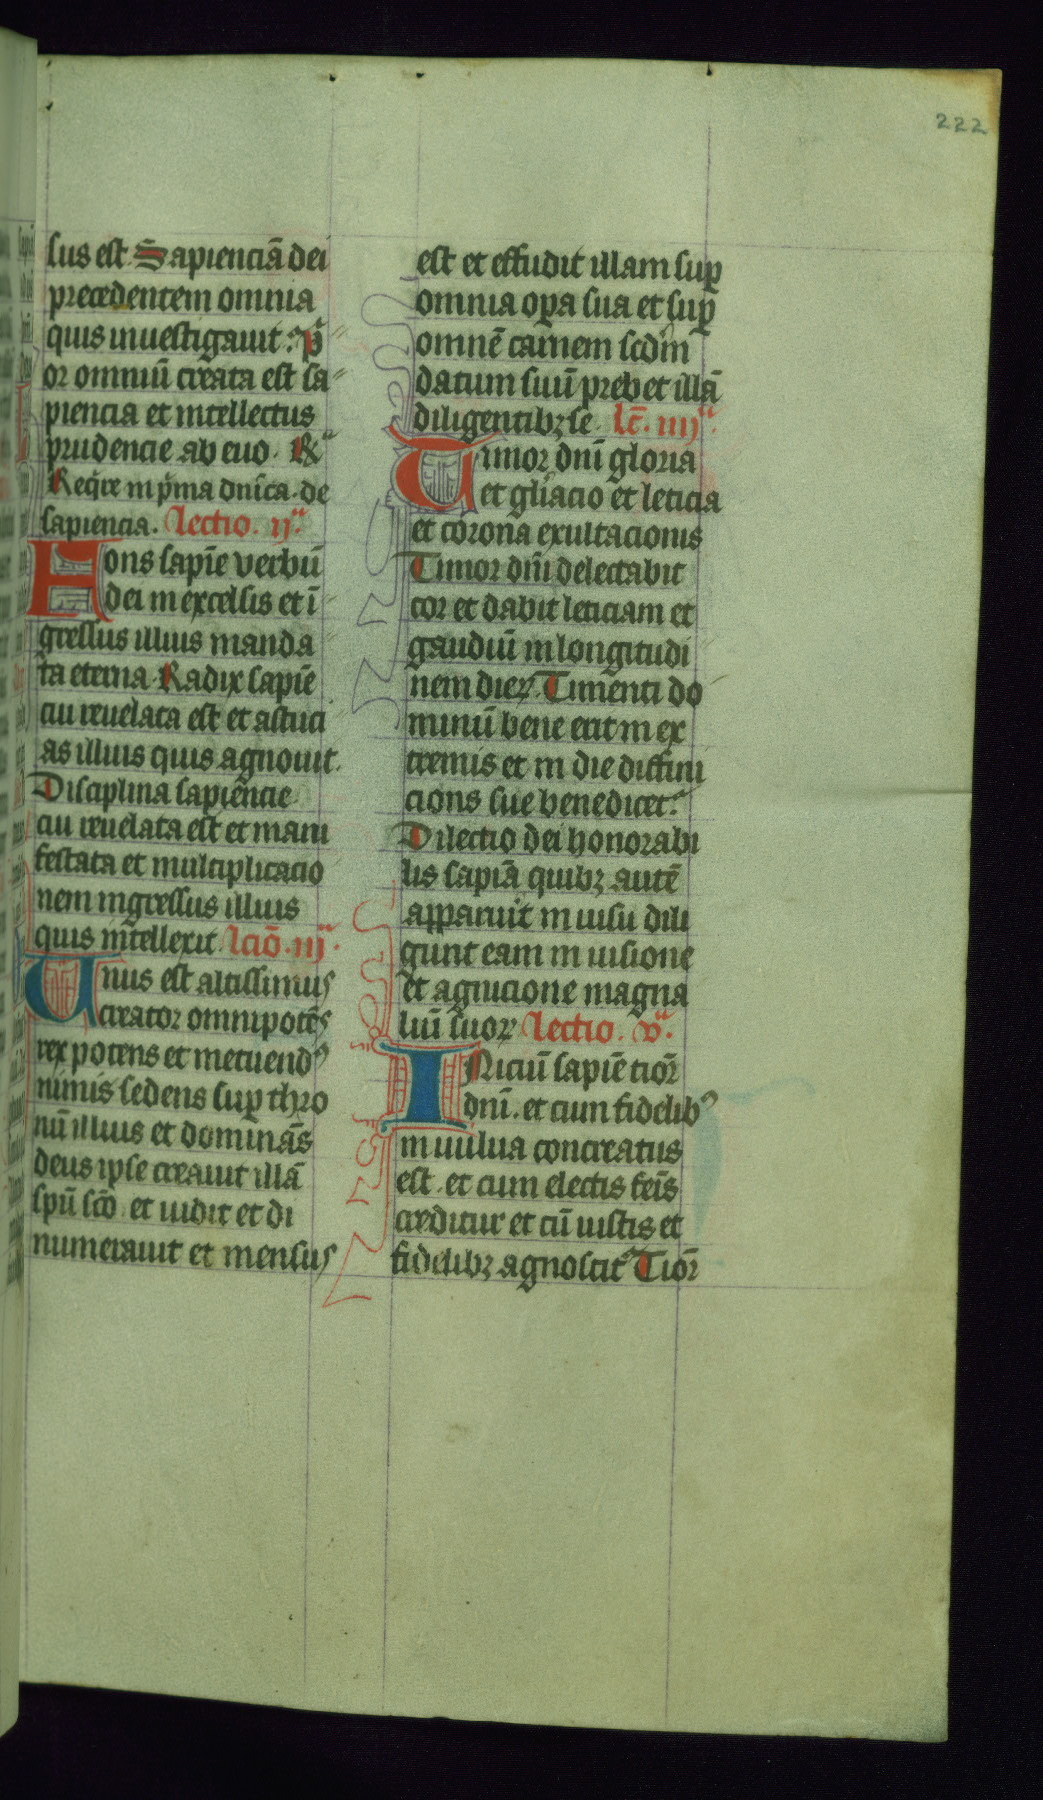 222
sus est. Sapienciā dei
precedentem omnia
quis inuestigauit. Pͥ
or omniū creata est sa
piencia et intellectus
prudencie ab euo. R
Reqͥre in pͥma dn̄ica. de
sapiencia. Lectio. ii.ͣ
Fons sapīe verbū
dei in excelsis et ī
gressus illius manda
ta eterna. Radix sapīe
cui reuelata est et astuci
as illius quis agnouit.
Disciplina sapiencie
cui reuelata est et mani
festata et multiplicacio
nem ingressus illius
quis intellexit. Lcīo. iii.ͣ
Unus est altissimus
creator omnipotēs
rex potens et metuendꝰ
nimis sedens suꝑ thro
nū illius et dominās
deus ipse creauit illā
spū sc̄o. et uidit et di
numerauit et mensus
est et effudit illam suꝑ
omnia oꝑa sua et suꝑ
omnē carnem scdm̄
datum suū prebet illā
diligentibꝫ se. Lc̄. iiii.ͣ
Timor dn̄i gloria
et gl̄iacio et leticia
et corona exultacionis
Timor dn̄i delectabit
cor et dabit leticiam et
gaudiū in longitudi
nem dieꝝ. Timenti do
minū bene erit in ex
tremis et in die diffini
cions sue benedicet.
Dilectio dei honorabi
lis sapīā quibꝫ autē
apparuit in uisu dili
gunt eam in uisione
et agnicione magna
liū suoꝝ. Lectio. v.ͣ
INiciū sapīe tiōr
dn̄i. et cum fidelibꝰ
in uulua concreatus
est. et cum electis feīs
creditur et cū iustis et
fidelibꝫ agnoscit᷑ Tiōr